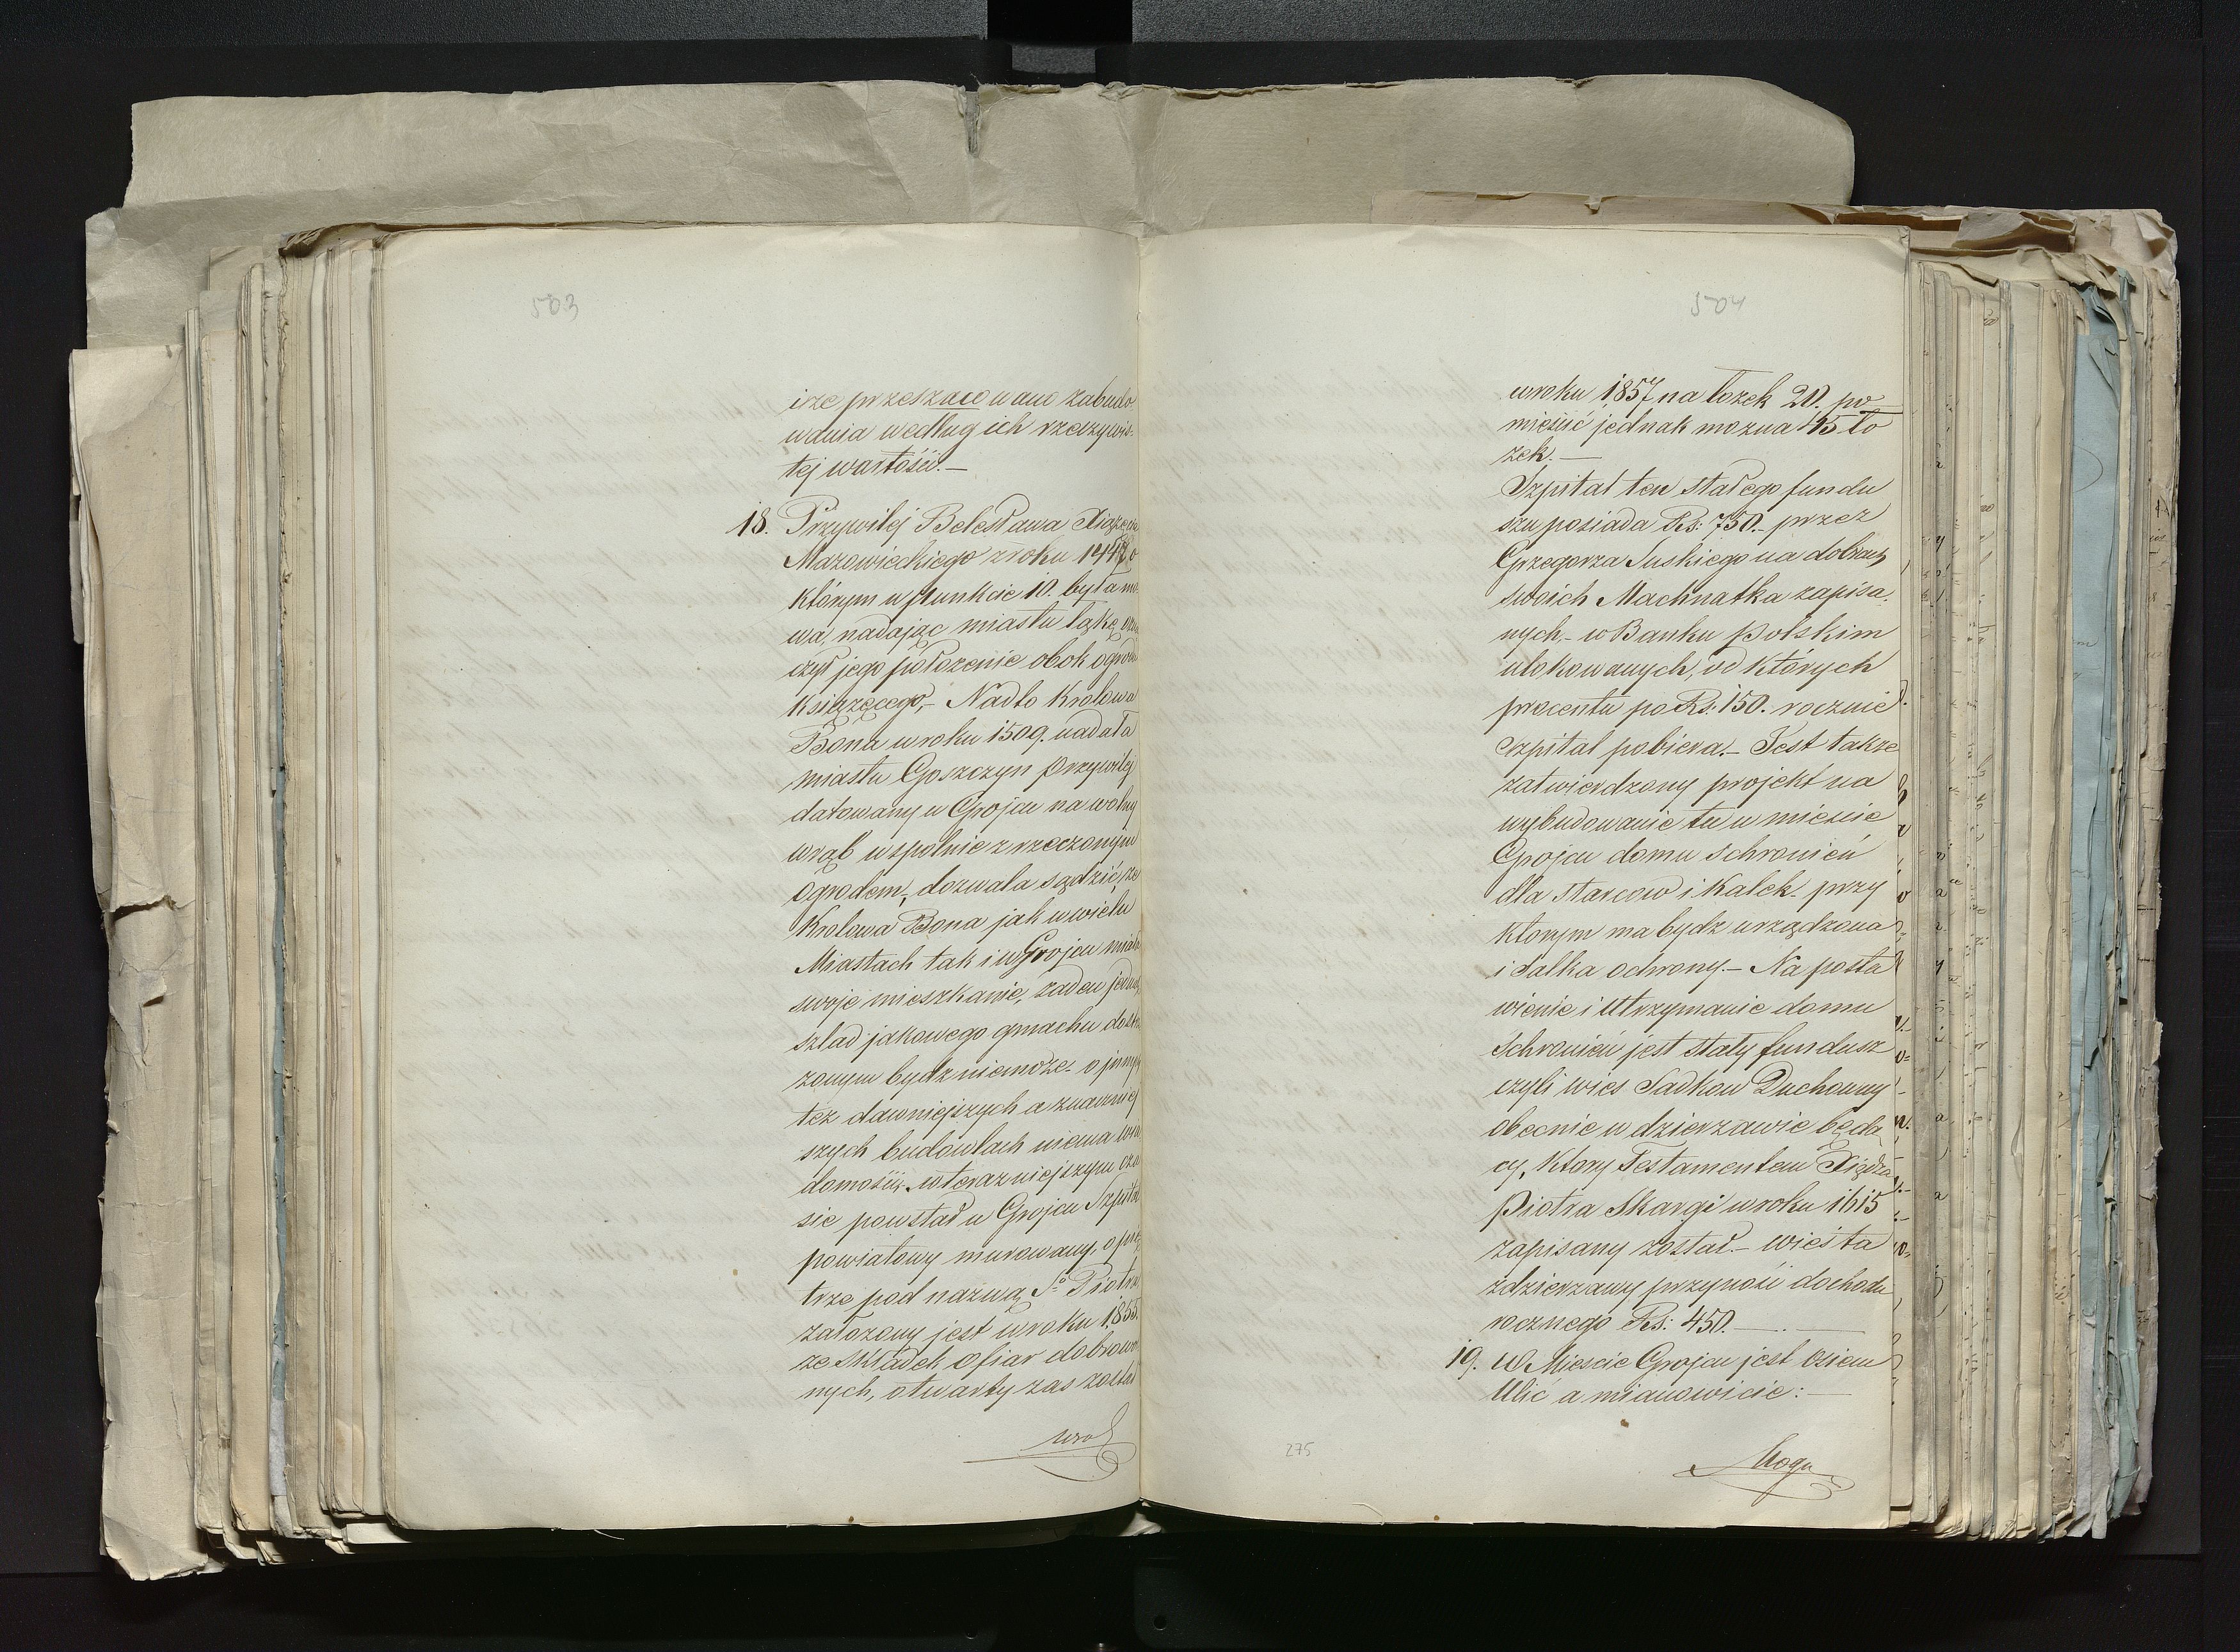 503
iże przeszacowano zabudo-
wania według ich rzeczywis-
tej wartości.—
18. Przywilej Bolesława Xiążęcia
Mazowieckiego z roku 1447 o
którym w punkcie 10. była mo-
wa, nadając miastu łąkę,
czył jego położenie obok ogrodu
książęcego,- Nadto Krolowa
Bona w roku 1509. nadała
miastu Goszczyn przywilej
datowany w Grojcu na wolny
wrąb wspolnie z rzeczonym
ogrodem, dozwala sądzić, że
Krolowa Bona jak w wielu
Miastach tak i w Grojcu miała
swoje mieszkanie, żaden jednak
szlad jakowego gmachu dostr
zonym bydz niemoże- o innych
też dawniejszych a znaczniej
szych budowlach niema wia
domości,- w teraźniejszym cza
sie powstał w Grojcu Szpital
powiatowy murowany, o pię
trze pod nazwą So Piotra
założony jest w roku 1855.
ze składek ofiar dobrowol
nych, otwarty zas został
w ro
504
w roku 1857 na łożek 20. po
mieścić jednak można 45 ło
żek.—
Szpital ten stałego fundu
szu posiada Rs: 750.- przez
Grzegorza Suskiego na dobrach
swoich Machnatka zapisa-
nych,- w Banku Polskim
ulokowanych, od których
procentu po Rs: 150. rocznie
szpital pobiera.- Jest także
zatwierdzony projekt na
wybudowanie tu w mieście
Grojcu domu Schronień
dla starcow i Kalek- przy
ktorym ma bydz urządzona
i Salka ochrony.- Na posta
wienie i Utrzymanie domu
Schronień jest stały fundusz
czyli wies Sadkow Duchowny
obecnie w dzierzawie będą
cy, Ktory Testamentem Xiędza
Piotra Skargi w roku 1615
zapisany został.- wieś ta
z dzierzawy przynosi dochodu
rocznego Rs: 450.—
19. W Miescie Grojcu jest Osiem
Ulic a mianowicie:—
Mogu
275